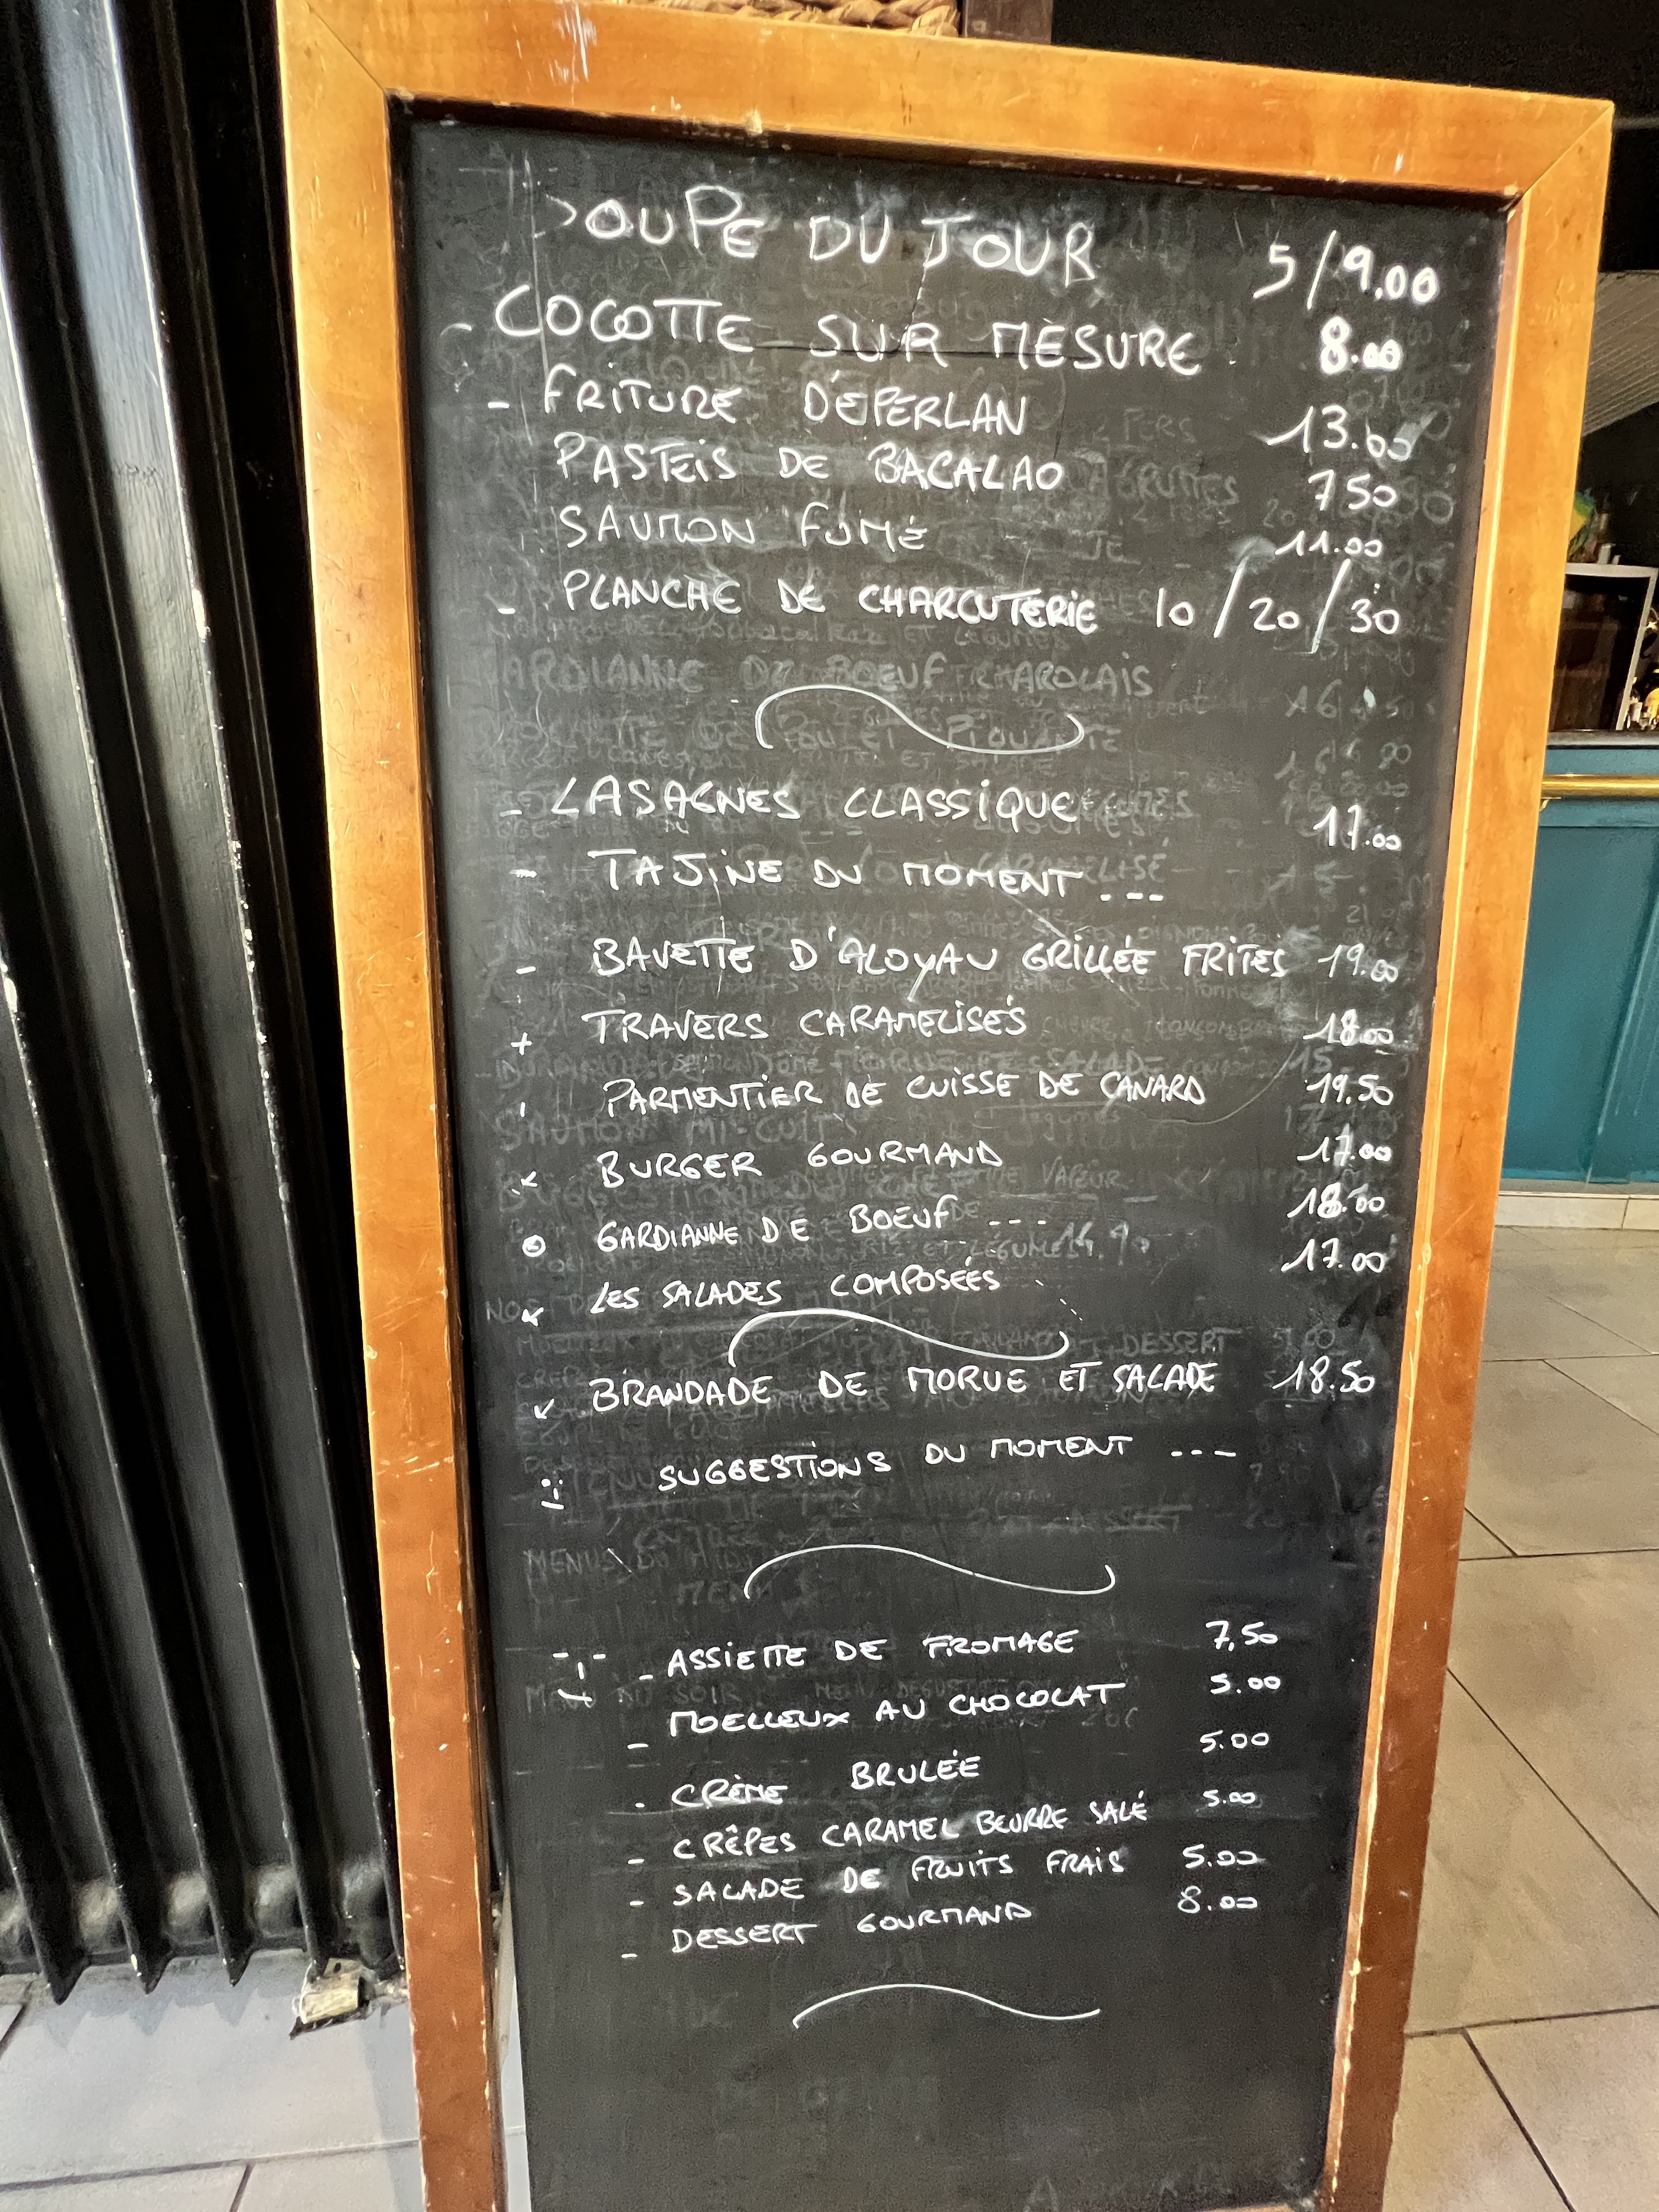 SOUPE DU JOUR 5/9.00
- COCOTTE SUR MESURE 8.00
- FRITURE D'ÉPERLAN 13.00
PASTEIS DE BACALAO 7 50
SAUMON FUMÉ 11.00
- PLANCHE DE CHARCUTERIE 10/20/30
ARDIANNE DE BOEUF CHAROLAIS
- LASAGNES CLASSIQUE 17.00
- TAJINE DU MOMENT ---
- BAVETTE D'ALOYAU GRILLÉE FRITES 19.00
+ TRAVERS CARAMELISÉS 18.00
PARMENTIER DE CUISSE DE CANARD 19.50
BURGER GOURMAND 17.00
GARDIANNE DE BOEUF --- 18.00
LES SALADES COMPOSÉES 17.00
BRANDADE DE MORUE ET SALADE 18.50
SUGGESTIONS DU MOMENT ---
- ASSIETTE DE FROMAGE 7,50
- MOELLEUX AU CHOCOLAT 5.00
- CRÈME BRULÉE 5.00
- CRÊPES CARAMEL BEURRE SALÉ 5.00
- SALADE DE FRUITS FRAIS 5.00
- DESSERT GOURMAND 8.00